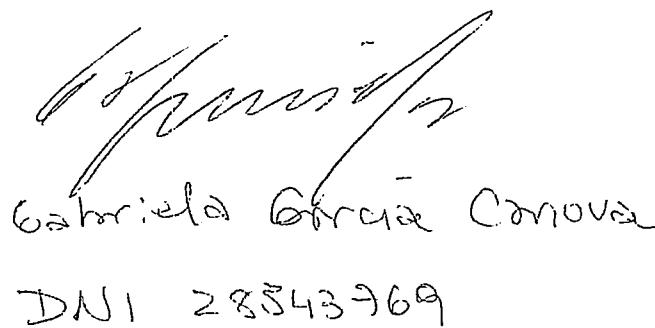 Gabriela García Canova
DNI 28543769